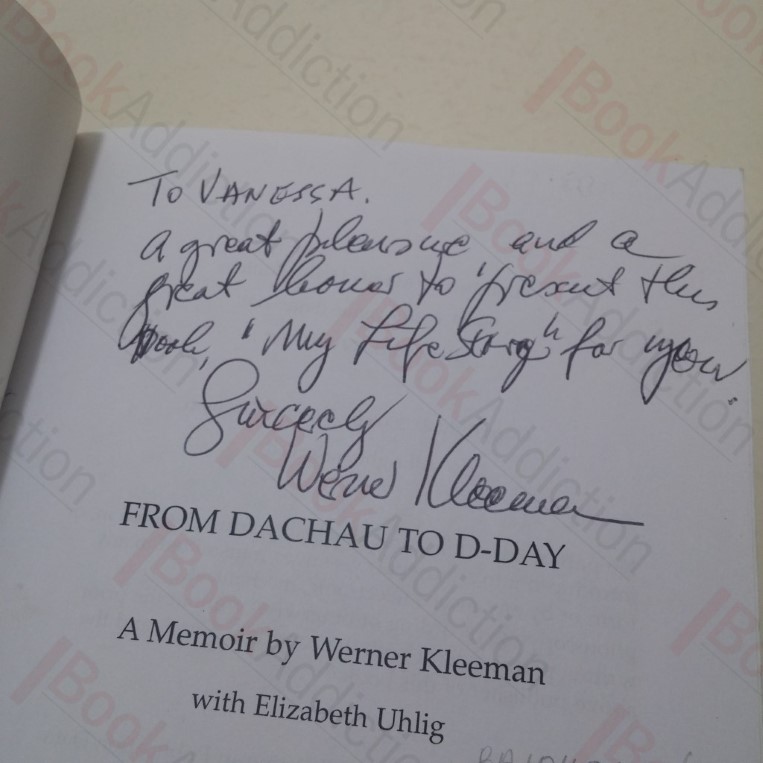 To VANESSA.
a great pleasure and a
great honor to present this
book, "My Life Story" for you.
Sincerely
Werner Kleeman
FROM DACHAU TO D-DAY
A Memoir by Werner Kleeman
with Elizabeth Uhlig
BookAddiction